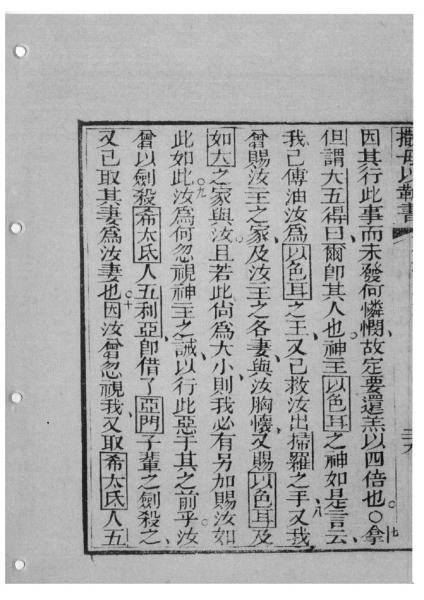 撒母以勒書
因其行此事而未發何憐憫、故定要還羔以四倍也。○七拿
但謂大五得曰、爾卽其人也。神主以色耳之神如是言云、
我已傅油汝爲以色耳之王、又已救汝出掃羅之手、八又我
曾賜汝主之家、及汝主之各妻與汝胸懷、又賜以色耳及
如大之家與汝、且若此尙爲大小、則我必有另加賜汝如
此如此。九汝爲何忽視神主之誡、以行此惡于其之前乎。汝
曾以劍殺希太氏人五利亞、卽借了亞門子輩之劍殺之、
又已取其妻爲汝妻也。十因汝曾忽視我、又取希太氏人五